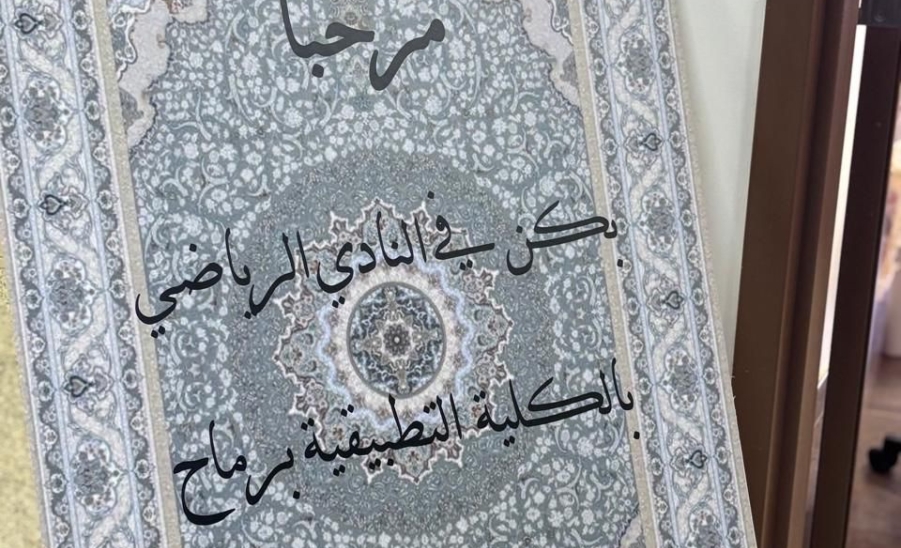 مرحباً
بكن في النادي الرياضي
بالكلية التطبيقية برماح